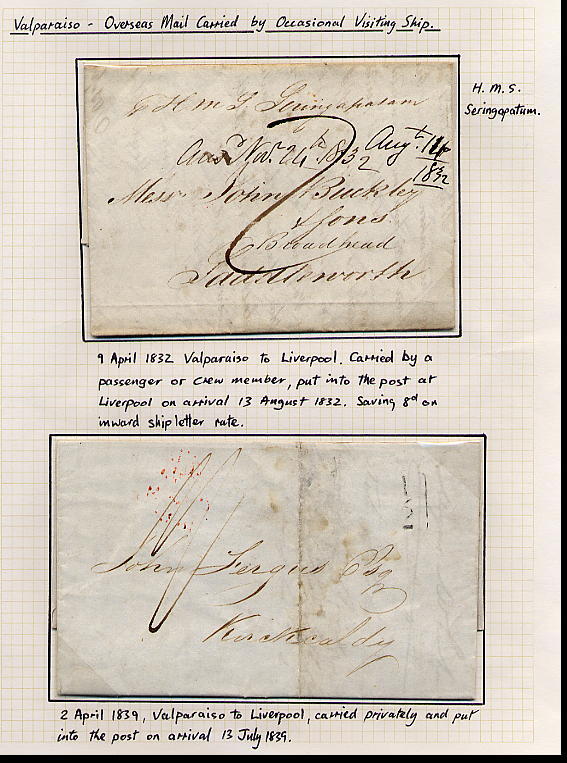 Valparaiso - Overseas Mail Carried by Occasional Visiting Ship.
H. M. S.
Seringapatum.
p H M S Seringapatam
Ansd Novr. 24th 1832 Augt. 14
1832
Messrs John Buckley
& Sons
Broadhead
Saddleworth
9 April 1832 Valparaiso to Liverpool. Carried by a
passenger or crew member, put into the post at
Liverpool on arrival 13 August 1832. Saving 8d on
inward ship letter rate.
John Fergus Esq
Kirckcaldy
2 April 1839, Valparaiso to Liverpool, carried privately and put
into the post on arrival 13 July 1839.